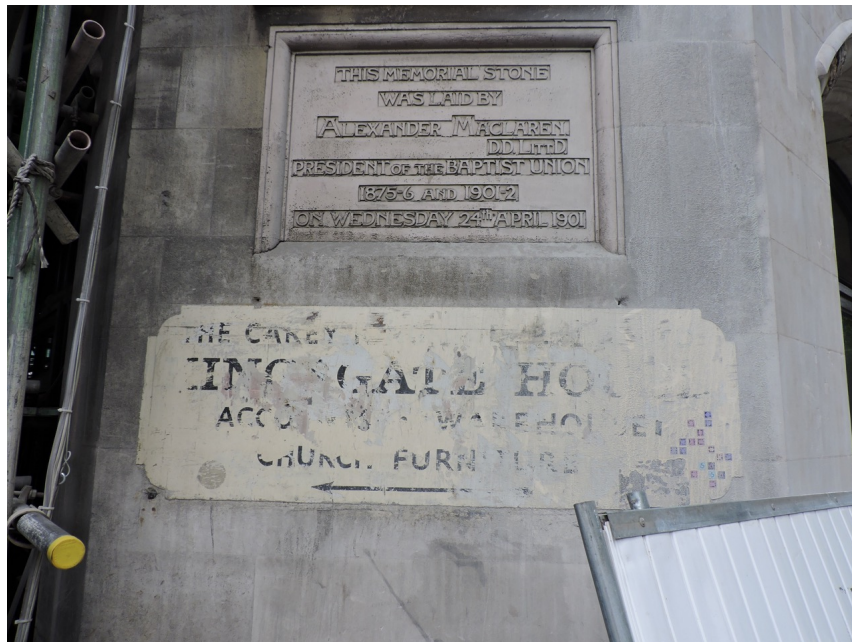 THIS MEMORIAL STONE
WAS LAID BY
ALEXANDER MACLAREN.
D.D. LITT.D
PRESIDENT OF THE BAPTIST UNION
1875-6 AND 1901-2
ON WEDNESDAY 24TH APRIL 1901
THE CAREY
GATE HO
ACCO WAREHOU
CHURCH FURNITURE